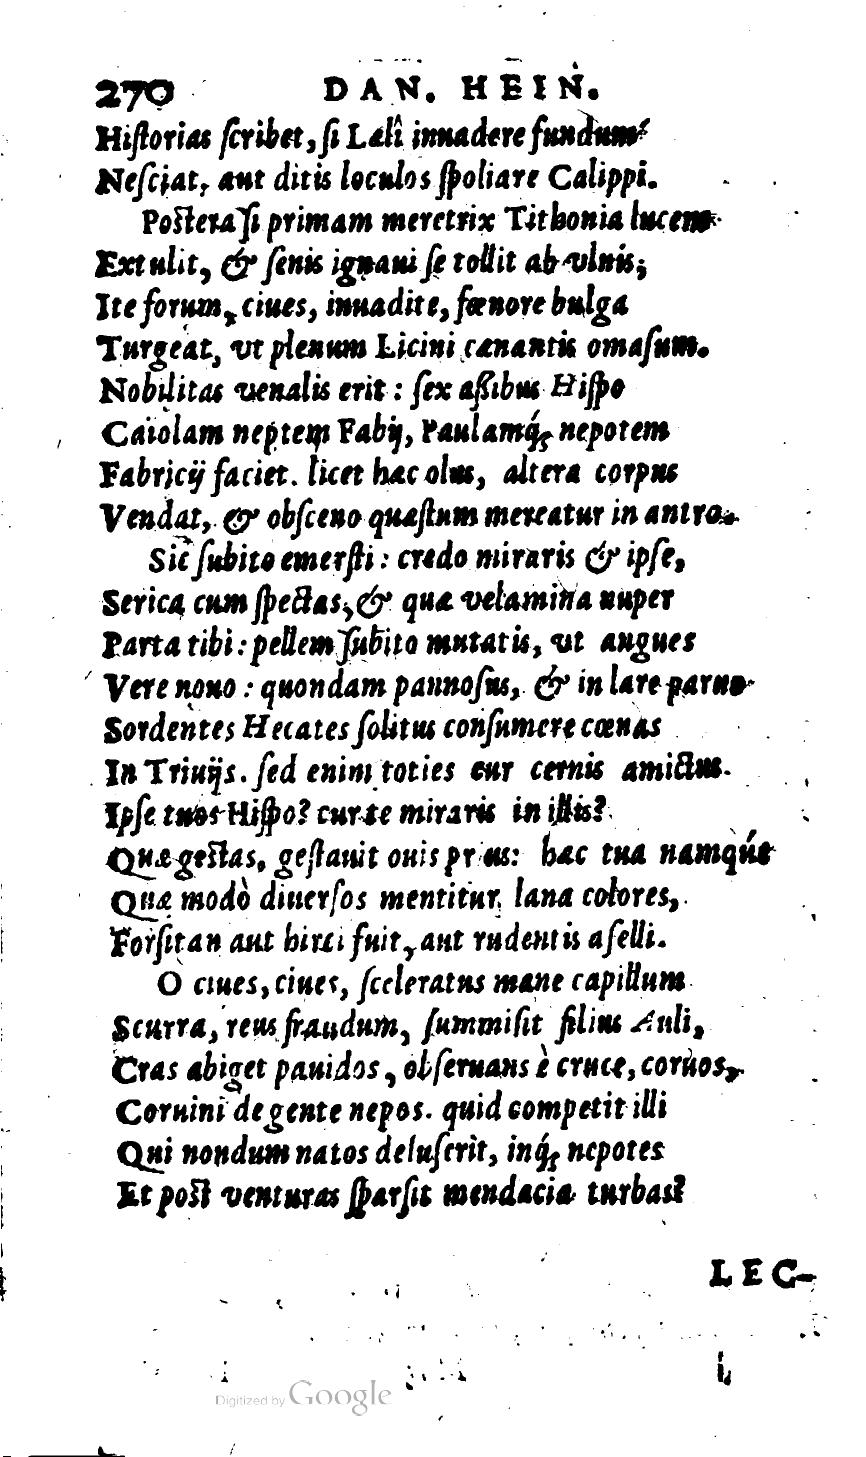 270 DAN. HEIN.
Hiſtorias ſcribet, ſi Lælî inuadere fundum?
Neſciat, aut ditis loculos ſpoliare Calippi.
Poſtera ſi primam meretrix Tithonia lucem
Extulit, & ſenis ignaui ſe tollit ab vlnis;
Ite forum, ciues, inuadite, fœnore bulga
Turgeat, vt plenum Licini cænantis omaſum.
Nobilitas venalis erit: ſex aßibus Hiſpo
Caiolam neptem Fabij, Paulamq́; nepotem
Fabricij faciet. licet hæc olus, altera corpus
Vendat, & obſceno quæſtum mereatur in antro.
Sic ſubito emerſti: credo miraris & ipſe,
Serica cum ſpectas, & quæ velamina nuper
Parta tibi: pellem ſubito mutatis, vt angues
Vere nouo: quondam pannoſus, & in lare paruo
Sordentes Hecates ſolitus conſumere cœnas
In Triuijs. ſed enim toties cur cernis amictus
Ipſe tuos Hiſpo? cur te miraris in illis?
Quæ geſtas, geſtauit ouis prius: hæc tua namq́ue
Quæ modò diuerſos mentitur lana colores,
Forſitan aut hirci fuit, aut rudentis aſelli.
O ciues, ciues, ſceleratus mane capillum
Scurra, reus fraudum, ſummiſit filius Auli,
Cras abiget pauidos, obſeruans è cruce, coruos,
Coruini de gente nepos. quid competit illi
Qui nondum natos deluſerit, inq́; nepotes
Et poſt venturas ſparſit mendacia turbas?
LEC-
Digitized by Google